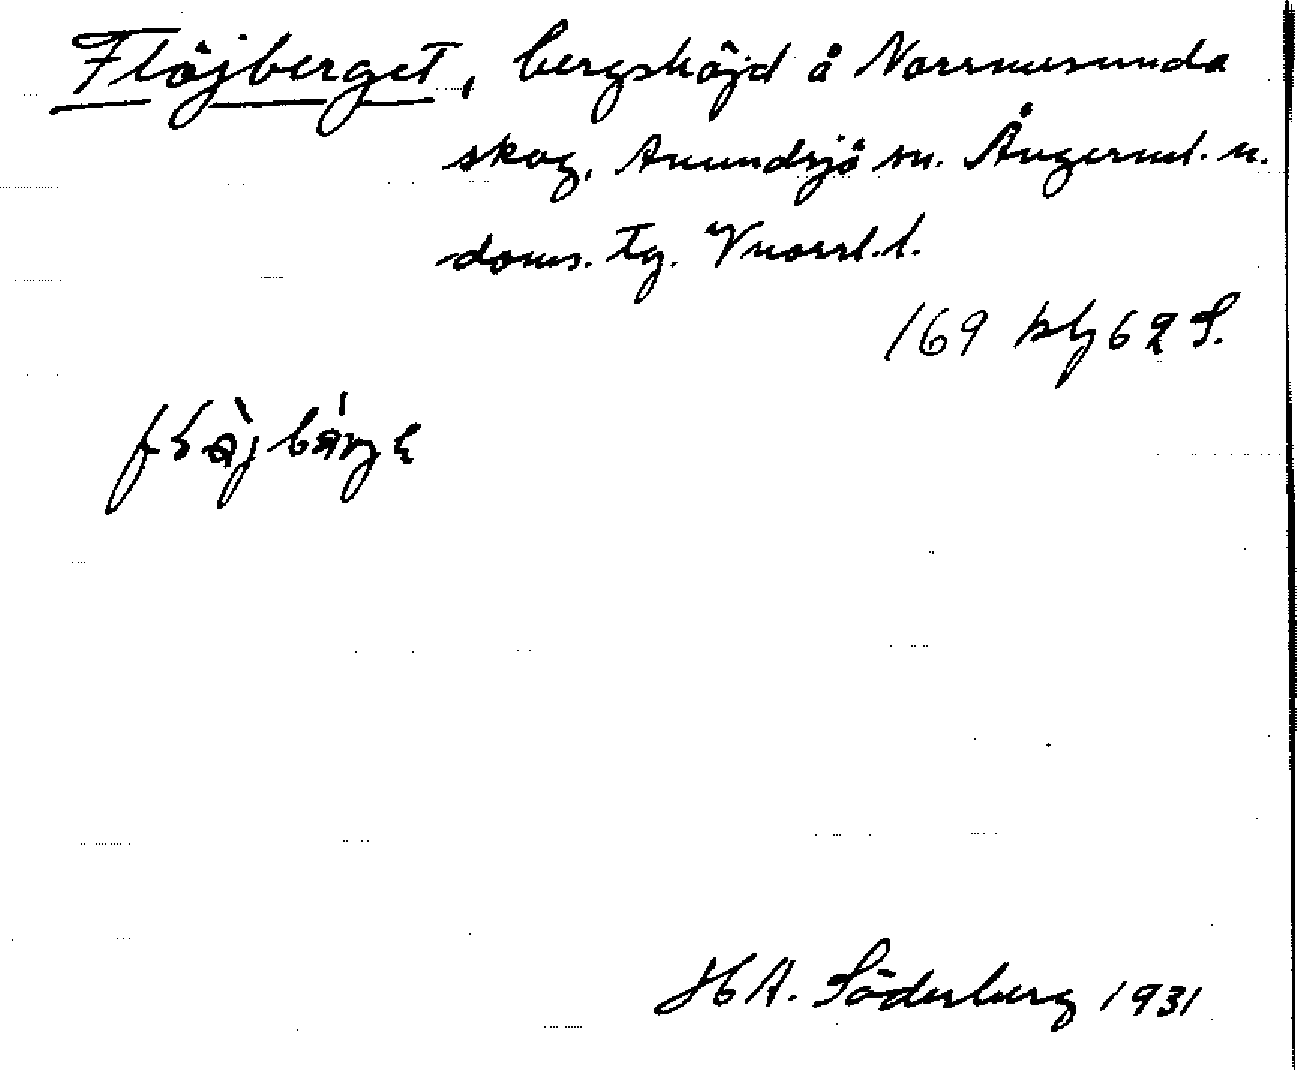 Flöjberget, bergshöjd å Norrmesunda
skog, Anundsjö sn. Ångerml. n.
doms. tg. Vnorrl. l.
169 blz 62 S.
H A. Söderberg 1931